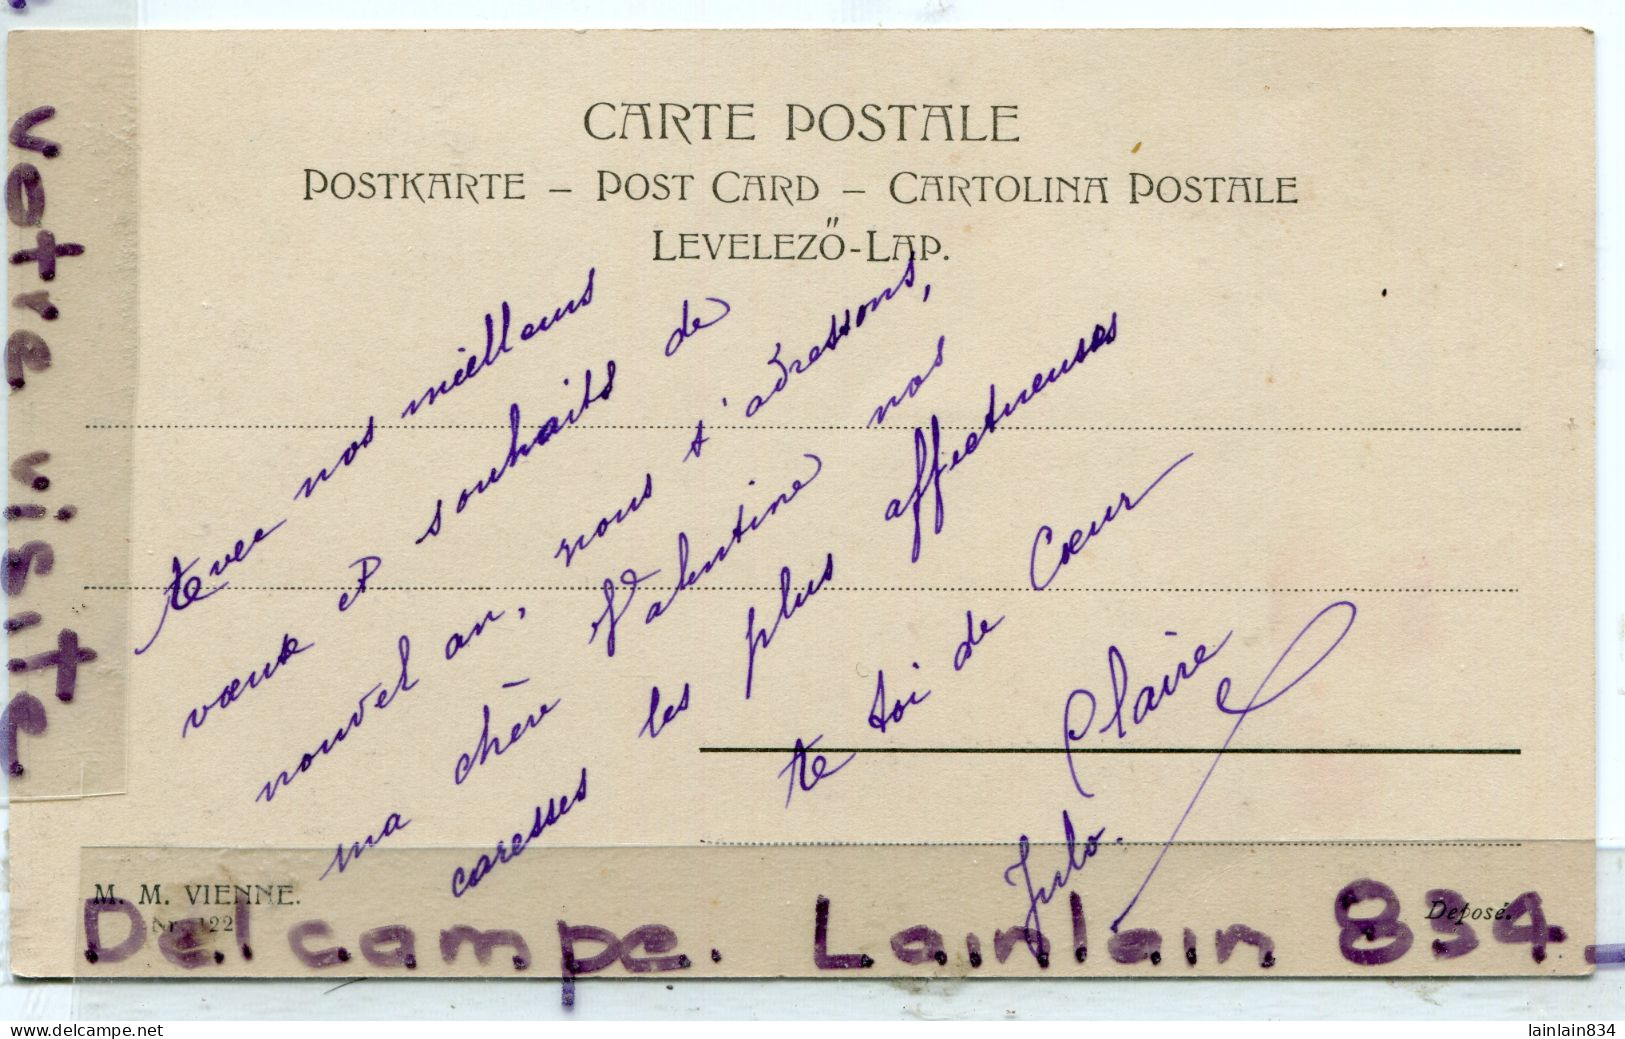 CARTE POSTALE
POSTKARTE – POST CARD – CARTOLINA POSTALE
LEVELEZŐ-LAP.
Avec nos meilleurs
vœux et souhaits de
nouvel an, nous t'adressons,
ma chère Valentine nos
caresses les plus affectueuses
A toi de Cœur
Claire
Julo.
M. M. VIENNE.
Nr. 122
Deposé.
votre visite
Delcampe. Lainlain 834
www.delcampe.net
lainlain834